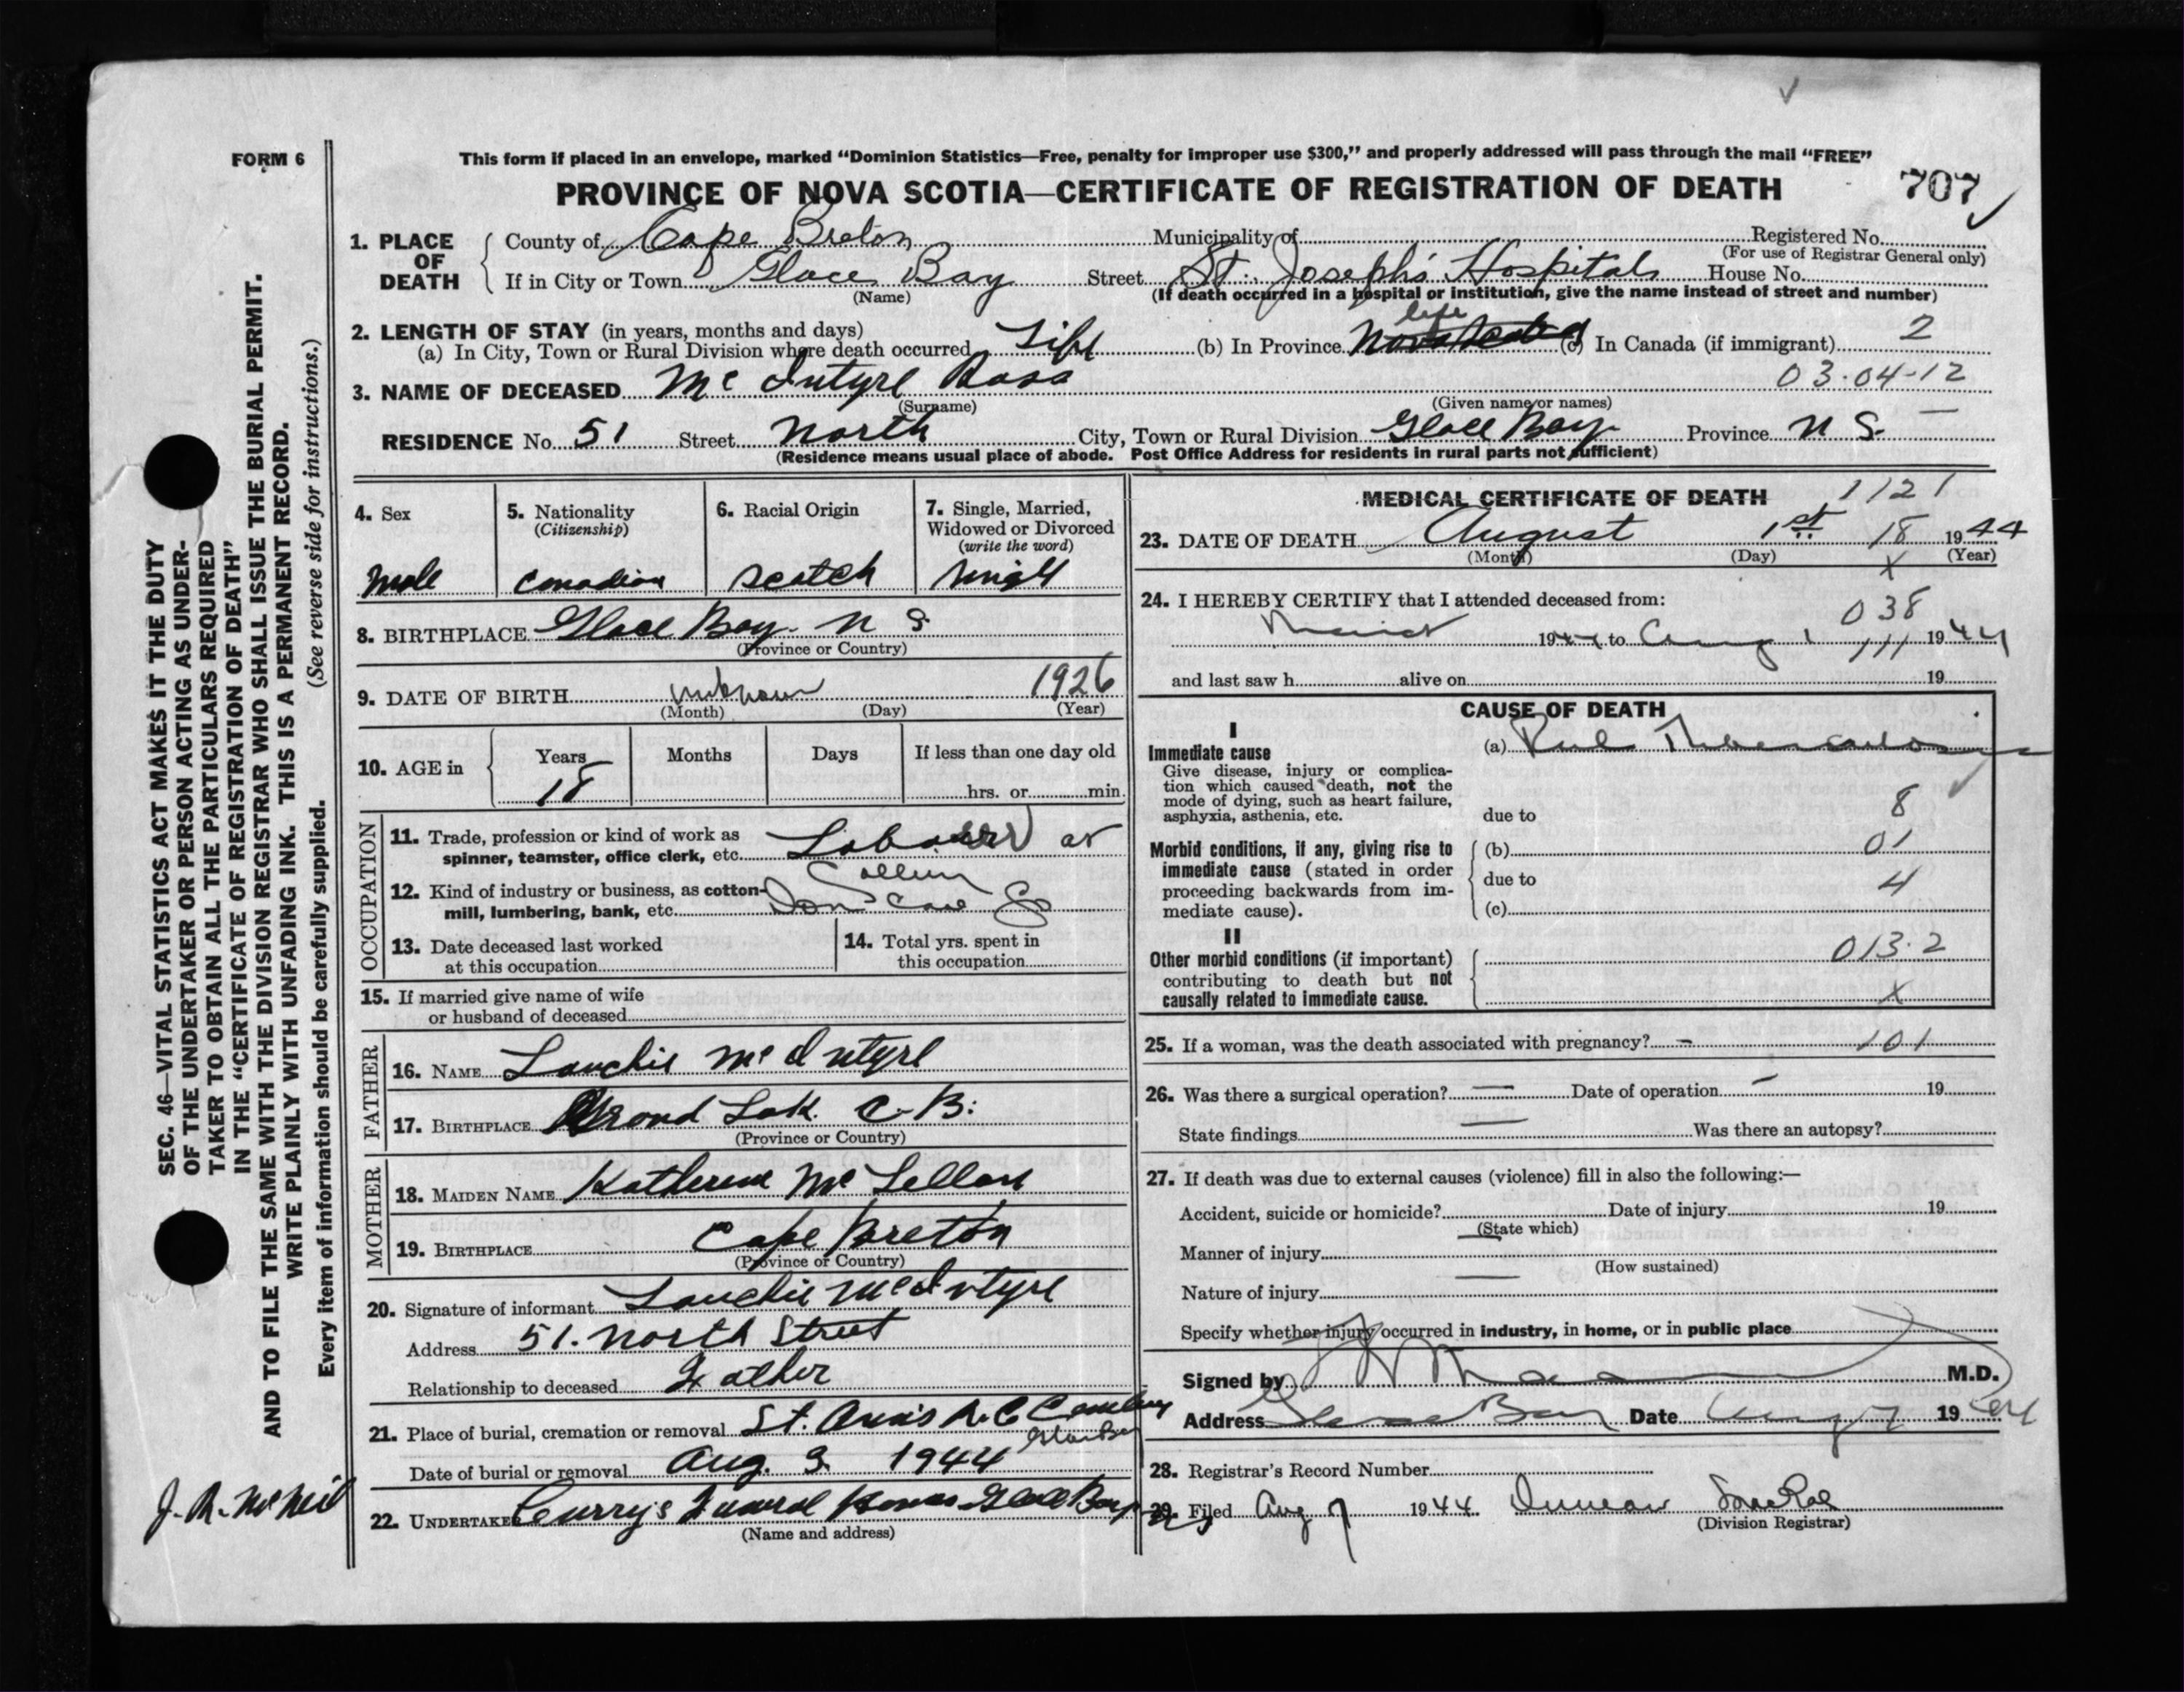 FORM 6
This form if placed in an envelope, marked “Dominion Statistics—Free, penalty for improper use $300,” and properly addressed will pass through the mail “FREE”
PROVINCE OF NOVA SCOTIA—CERTIFICATE OF REGISTRATION OF DEATH 707
1. PLACE OF DEATH
County of Cape Breton Municipality of Registered No.
(For use of Registrar General only)
If in City or Town Glace Bay Street St. Joseph's Hospital House No.
(Name) (If death occurred in a hospital or institution, give the name instead of street and number)
2. LENGTH OF STAY (in years, months and days) life
(a) In City, Town or Rural Division where death occurred Life (b) In Province Nova Scotia (c) In Canada (if immigrant) 2
3. NAME OF DECEASED Mc Intyre Ross 03-04-12
(Surname) (Given name or names)
RESIDENCE No. 51 Street North City, Town or Rural Division Glace Bay Province N S.
(Residence means usual place of abode. Post Office Address for residents in rural parts not sufficient)
4. Sex
Male
5. Nationality
(Citizenship)
Canadian
6. Racial Origin
Scotch
7. Single, Married,
Widowed or Divorced
(write the word)
Single
8. BIRTHPLACE Glace Bay. N S.
(Province or Country)
9. DATE OF BIRTH unknown 1926
(Month) (Day) (Year)
10. AGE in Years Months Days If less than one day old
18 hrs. or min.
OCCUPATION
11. Trade, profession or kind of work as
spinner, teamster, office clerk, etc. Labourer at
12. Kind of industry or business, as cotton-
mill, lumbering, bank, etc.
13. Date deceased last worked
at this occupation
14. Total yrs. spent in
this occupation
15. If married give name of wife
or husband of deceased
FATHER
16. NAME Lauchie McIntyre
17. BIRTHPLACE Grand Lake. C-B.
(Province or Country)
MOTHER
18. MAIDEN NAME Katherine Mc Lellan
19. BIRTHPLACE Cape Breton
(Province or Country)
20. Signature of informant Lauchie McIntyre
Address 51. North Street
Relationship to deceased Father
21. Place of burial, cremation or removal St. Ann's R.C Cemetery
Glace Bay
Date of burial or removal Aug. 3. 1944
22. UNDERTAKER Curry's Funeral Home Glace Bay N S
(Name and address)
MEDICAL CERTIFICATE OF DEATH 1121
23. DATE OF DEATH August 1st 18 1944
(Month) (Day) (Year)
X
24. I HEREBY CERTIFY that I attended deceased from: 038
1944 to Aug 1 111 1944
and last saw h alive on 19
CAUSE OF DEATH
I
Immediate cause
(a) Pul Tuberculosis
Give disease, injury or complica-
tion which caused death, not the
mode of dying, such as heart failure,
asphyxia, asthenia, etc.
due to 8
Morbid conditions, if any, giving rise to
immediate cause (stated in order
proceeding backwards from im-
mediate cause).
(b) 01
due to 4
(c)
II
Other morbid conditions (if important)
contributing to death but not
causally related to immediate cause.
013.2
X
25. If a woman, was the death associated with pregnancy? — 101
26. Was there a surgical operation? — Date of operation — 19
State findings — Was there an autopsy?
27. If death was due to external causes (violence) fill in also the following:—
Accident, suicide or homicide? Date of injury 19
(State which)
Manner of injury
(How sustained)
Nature of injury
Specify whether injury occurred in industry, in home, or in public place
Signed by M.D.
Address Glace Bay Date Aug 7 1944
28. Registrar's Record Number
29. Filed Aug 7 1944 Duncan MacRae
(Division Registrar)
SEC. 46—VITAL STATISTICS ACT MAKES IT THE DUTY
OF THE UNDERTAKER OR PERSON ACTING AS UNDER-
TAKER TO OBTAIN ALL THE PARTICULARS REQUIRED
IN THE “CERTIFICATE OF REGISTRATION OF DEATH”
AND TO FILE THE SAME WITH THE DIVISION REGISTRAR WHO SHALL ISSUE THE BURIAL PERMIT.
WRITE PLAINLY WITH UNFADING INK. THIS IS A PERMANENT RECORD.
Every item of information should be carefully supplied. (See reverse side for instructions.)
J. R. McNeil